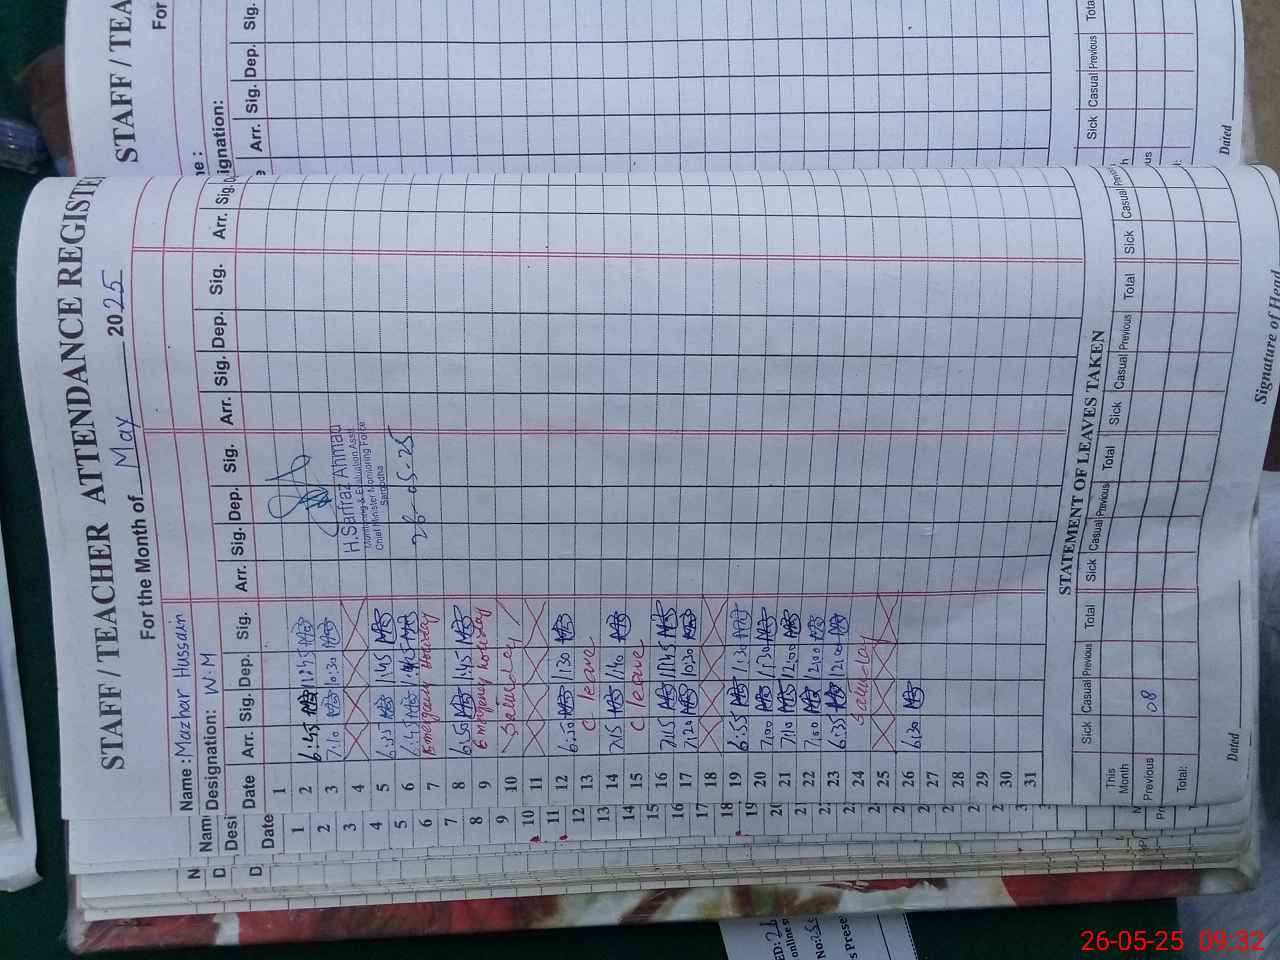 STAFF / TEACHER ATTENDANCE REGISTE
For the Month of May 2025
Name : Mazhar Hussain
Designation: W.M
Date Arr. Sig. Dep. Sig. Arr. Sig. Dep. Sig. Arr. Sig. Dep. Sig. Arr. Sig.
1
2 6:45 1:45
3 7:10 10:30
4
5 6:35 1:45
6 6:45 1:45
7 Emergancy Holiday
8 6:50 1:45
9 Emergency holiday
10 Saturday
11
12 6:50 1:30
13 C leave
14 7:15 1:40
15 C leave
16 7:15 11:45
17 7:20 10:30
18
19 6:55 1:30
20 7:00 1:30
21 7:10 12:00
22 7:00 12:00
23 6:35 12:00
24 Saturday
25
26 6:30
27
28
29
30
31
H.Sarfraz Ahmad
Monitoring & Evaluation Asstt
Chief Minister Monitoring Force
Sargodha
26-05-25
STATEMENT OF LEAVES TAKEN
Sick Casual Previous Total Sick Casual Previous Total Sick Casual Previous Total Sick Casual
This Month
Previous 08
Total:
Dated
Signature of Head
STAFF / TEA
For
ignation:
Arr. Sig. Dep. Sig.
Sick Casual Previous
Dated
26-05-25 09:32